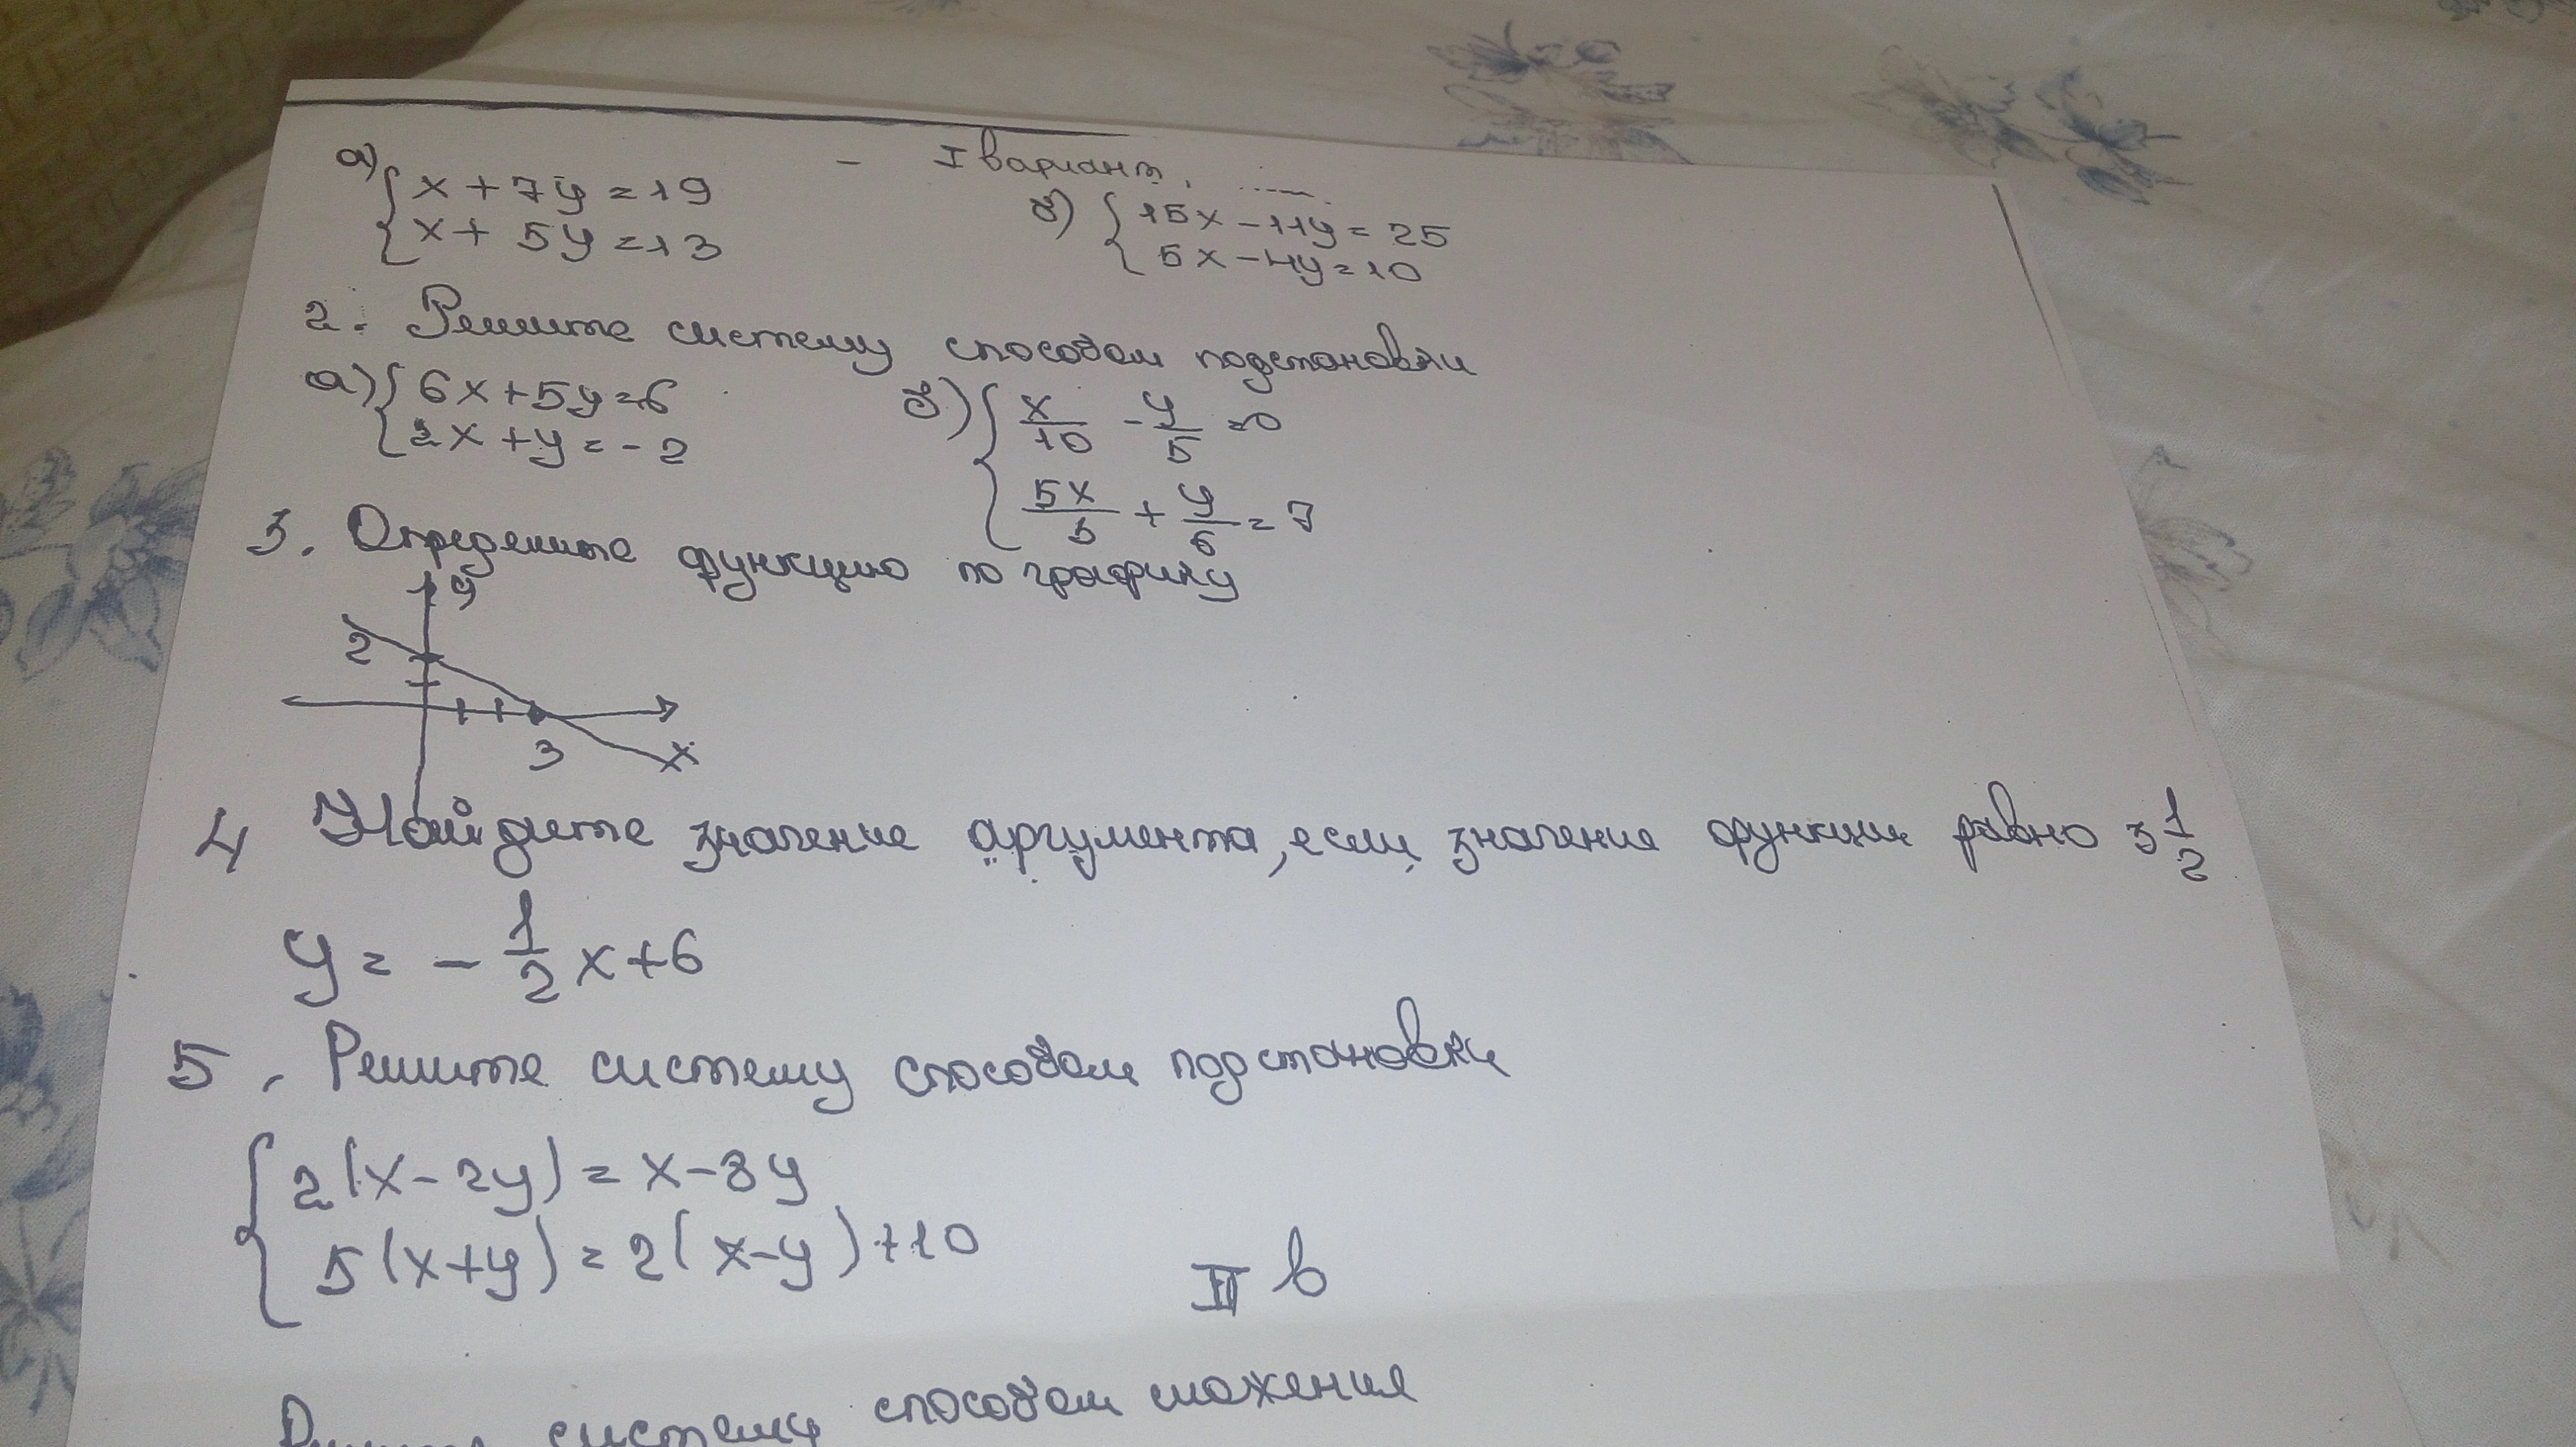 I вариант
а) { x + 7y = 19
x + 5y = 13
б) { 15x - 11y = 25
5x - 4y = 10
2. Решите систему способом подстановки
а) { 6x + 5y = 6
2x + y = -2
б) { x/10 - y/5 = 0
5x/3 + y/6 = 7
3. Определите функцию по графику
y
2
3
x
4 Найдите значение аргумента, если значение функции равно 3 1/2
y = - 1/2 x + 6
5. Решите систему способом подстановки
{ 2(x - 2y) = x - 8y
5(x + y) = 2(x - y) + 10
II в
систему способом сложения